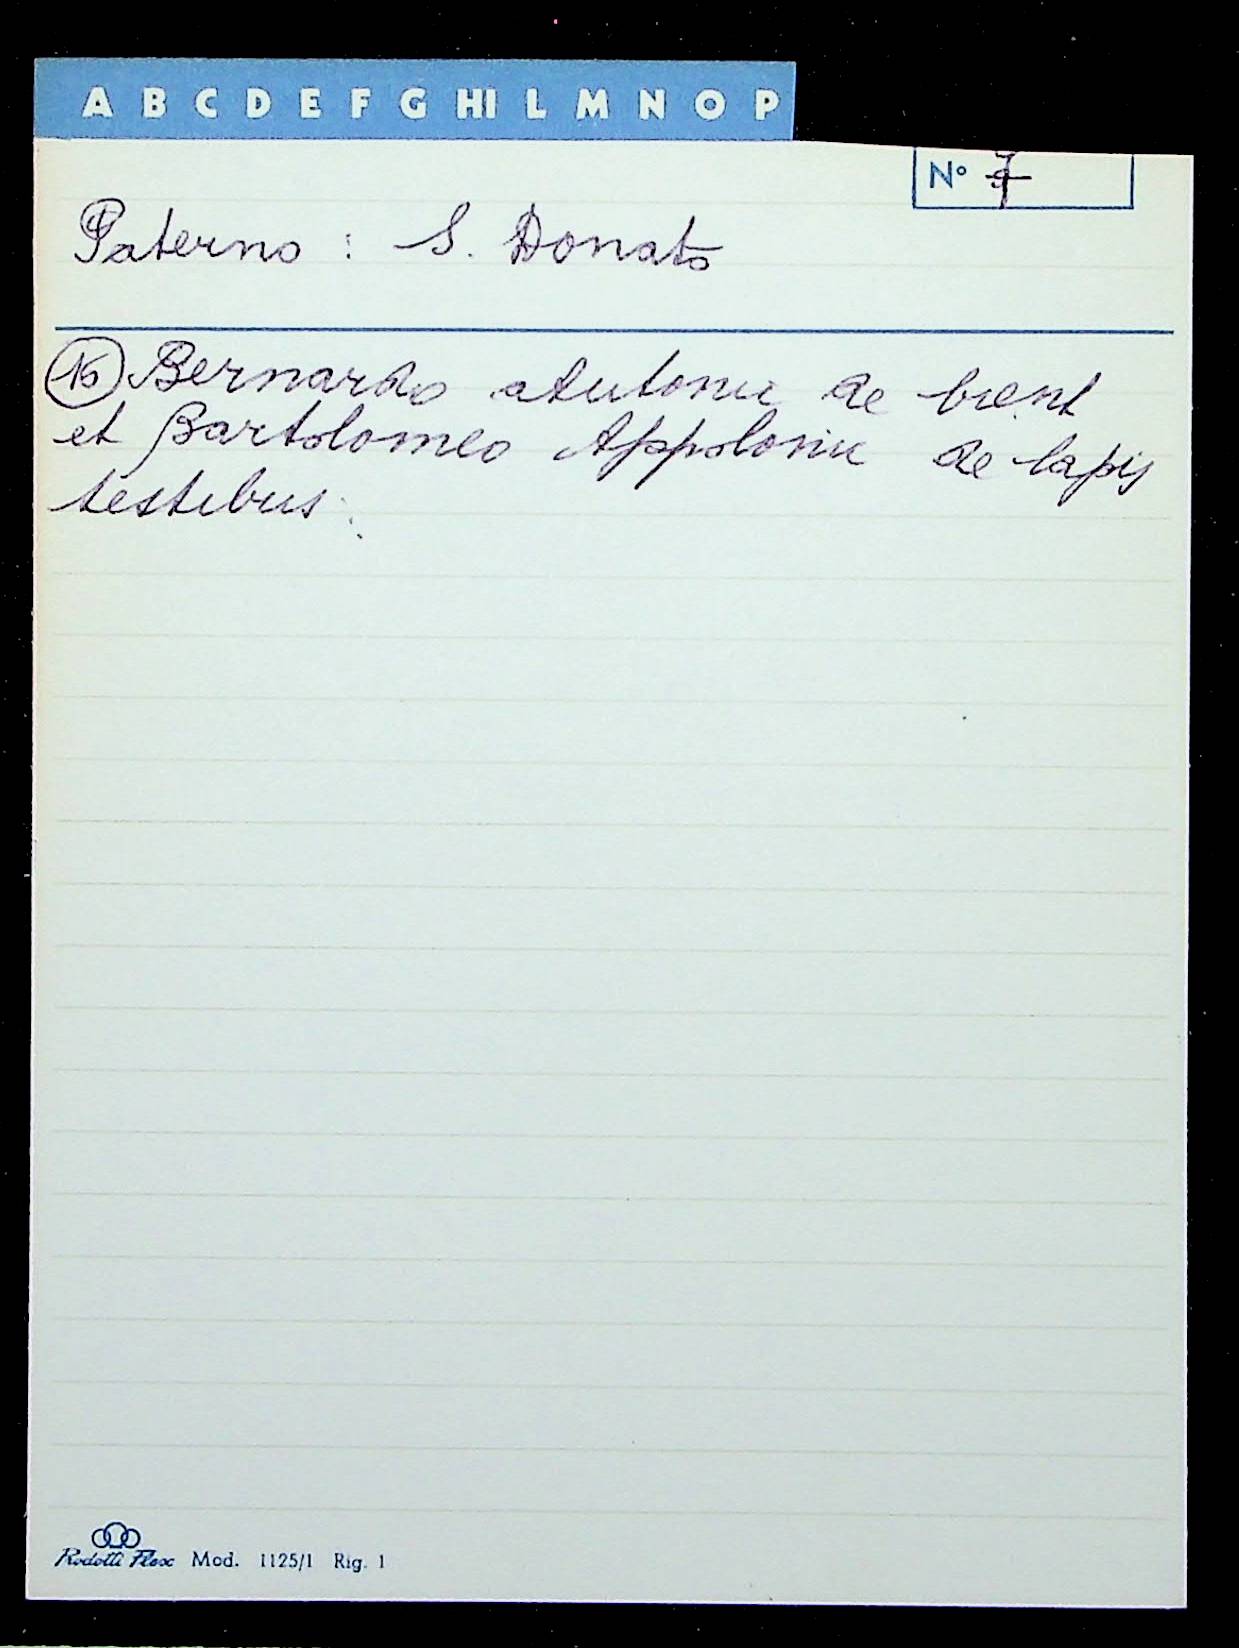 A B C D E F G HI L M N O P
N° 7
Paterno : S. Donato
16 Bernardo Antonii de
et Bartolomeo Appolonii de lapis
testibus.
Rodotti Flex Mod. 1125/1 Rig. 1